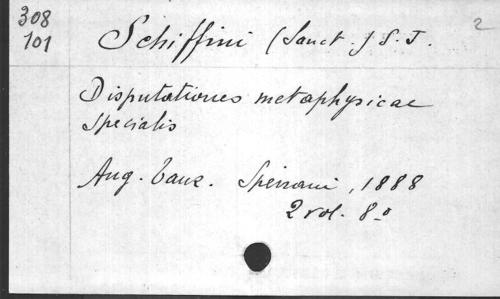 308
101
Schiffini (Sanct.) S. J.
2
Disputationes metaphysicae
specialis
Aug. Taur. Speirani, 1888
2 vol. 8o